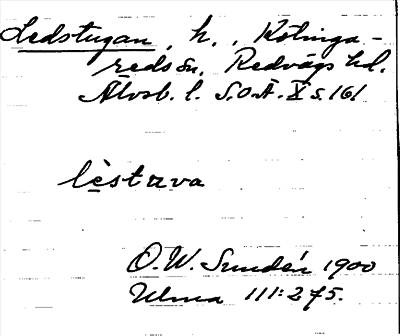 Ledstugan, h., Kölinga-
reds sn, Redvägs hd.
Älvsb. l. S.O.Ä. X s. 161
lèstuva
O.W. Sundén 1900
Ulma 111:275.